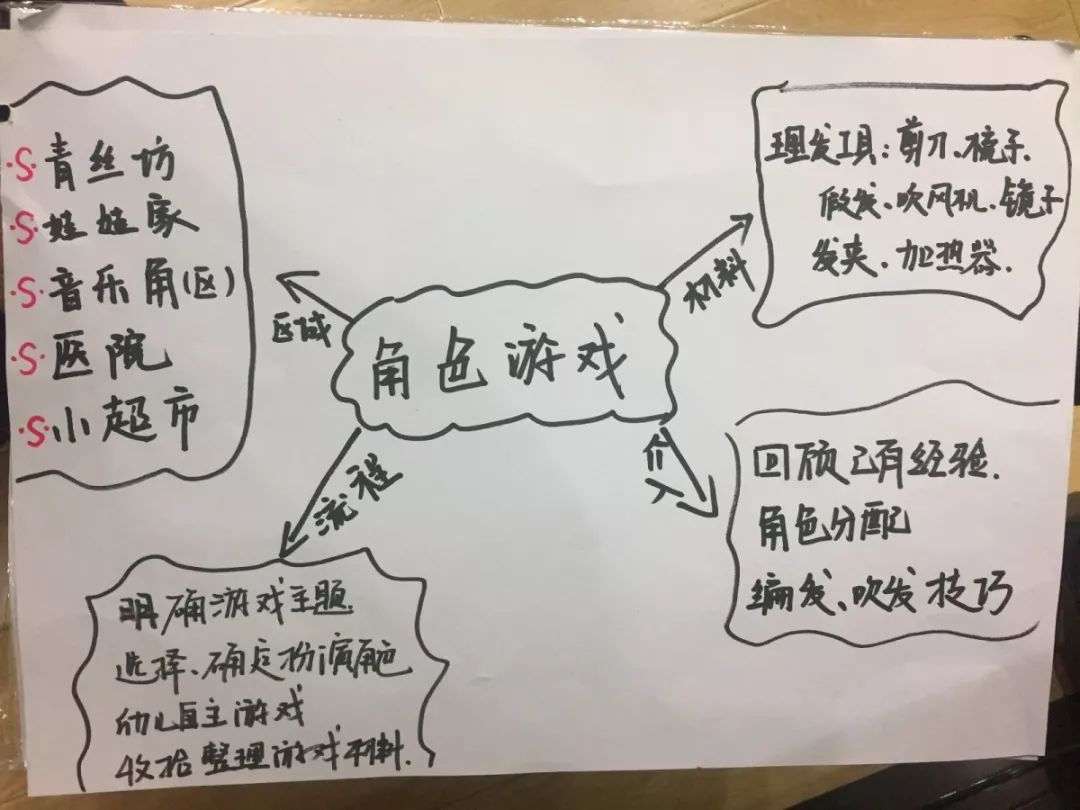 角色游戏
区域
·S·青丝坊
·S·娃娃家
·S·音乐角(区)
·S·医院
·S·小超市
材料
理发工具:剪刀、梳子、
假发、吹风机、镜子
发夹、加热器.
流程
明确游戏主题
选择、确定扮演角色
幼儿自主游戏
收拾整理游戏材料.
介入
回顾已有经验.
角色分配
编发、吹发技巧